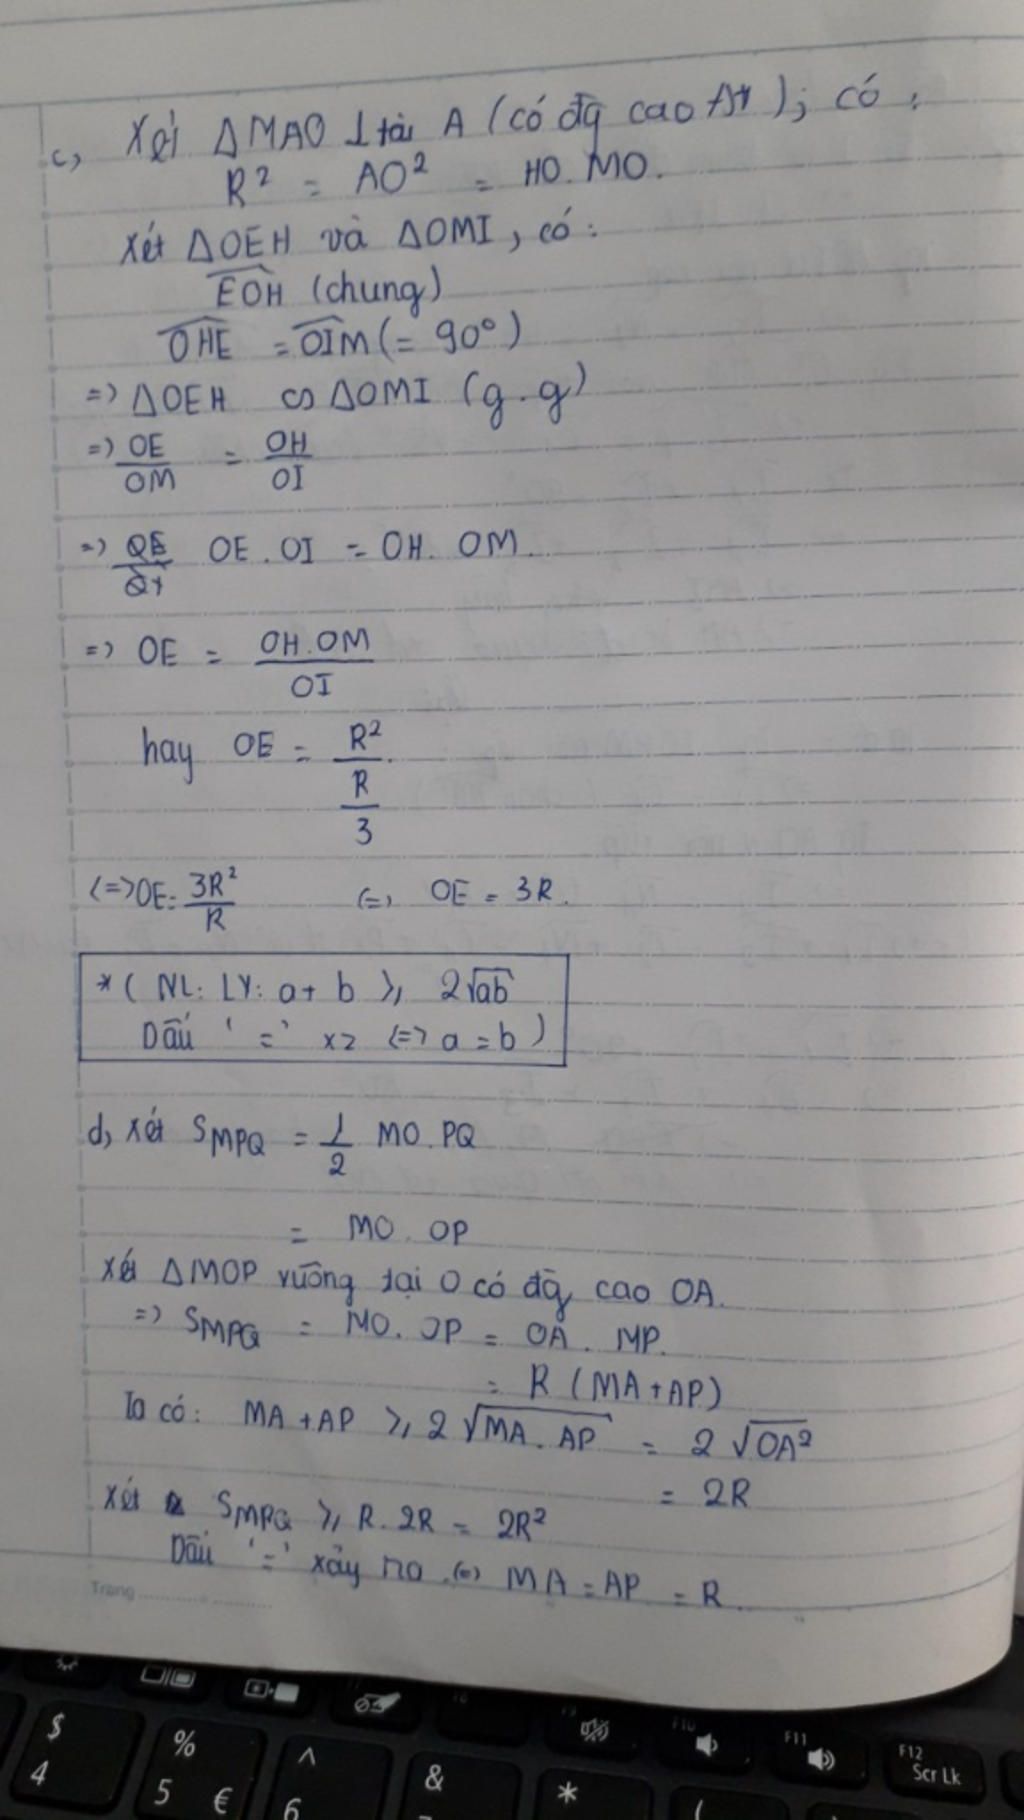 c, Xét ΔMAO ⊥ tại A (có đg cao AH); có:
R² = AO² = HO. MO.
Xét ΔOEH và ΔOMI, có:
EOH (chung)
OHE = OIM (= 90°)
=> ΔOEH ∽ ΔOMI (g.g)
=> OE/OM = OH/OI
=> OE . OI = OH. OM.
=> OE = OH.OM/OI
hay OE = R²/(R/3)
<=> OE = 3R²/R <=> OE = 3R.
* ( NL: LY: a + b ≥ 2√ab
Dấu '=' x> <=> a = b )
d, Xét SMPQ = 1/2 MO.PQ
= MO. OP
Xét ΔMOP vuông tại O có đg cao OA.
=> SMPQ = MO. OP = OA . MP.
= R (MA + AP)
Ta có: MA + AP ≥ 2√MA. AP = 2√OA²
= 2R
Xét SMPQ ≥ R. 2R = 2R²
Dấu '=' xảy ra <=> MA = AP = R
Trang
$ 4
% 5 €
^ 6
&
*
(
F10
F11
F12 Scr Lk